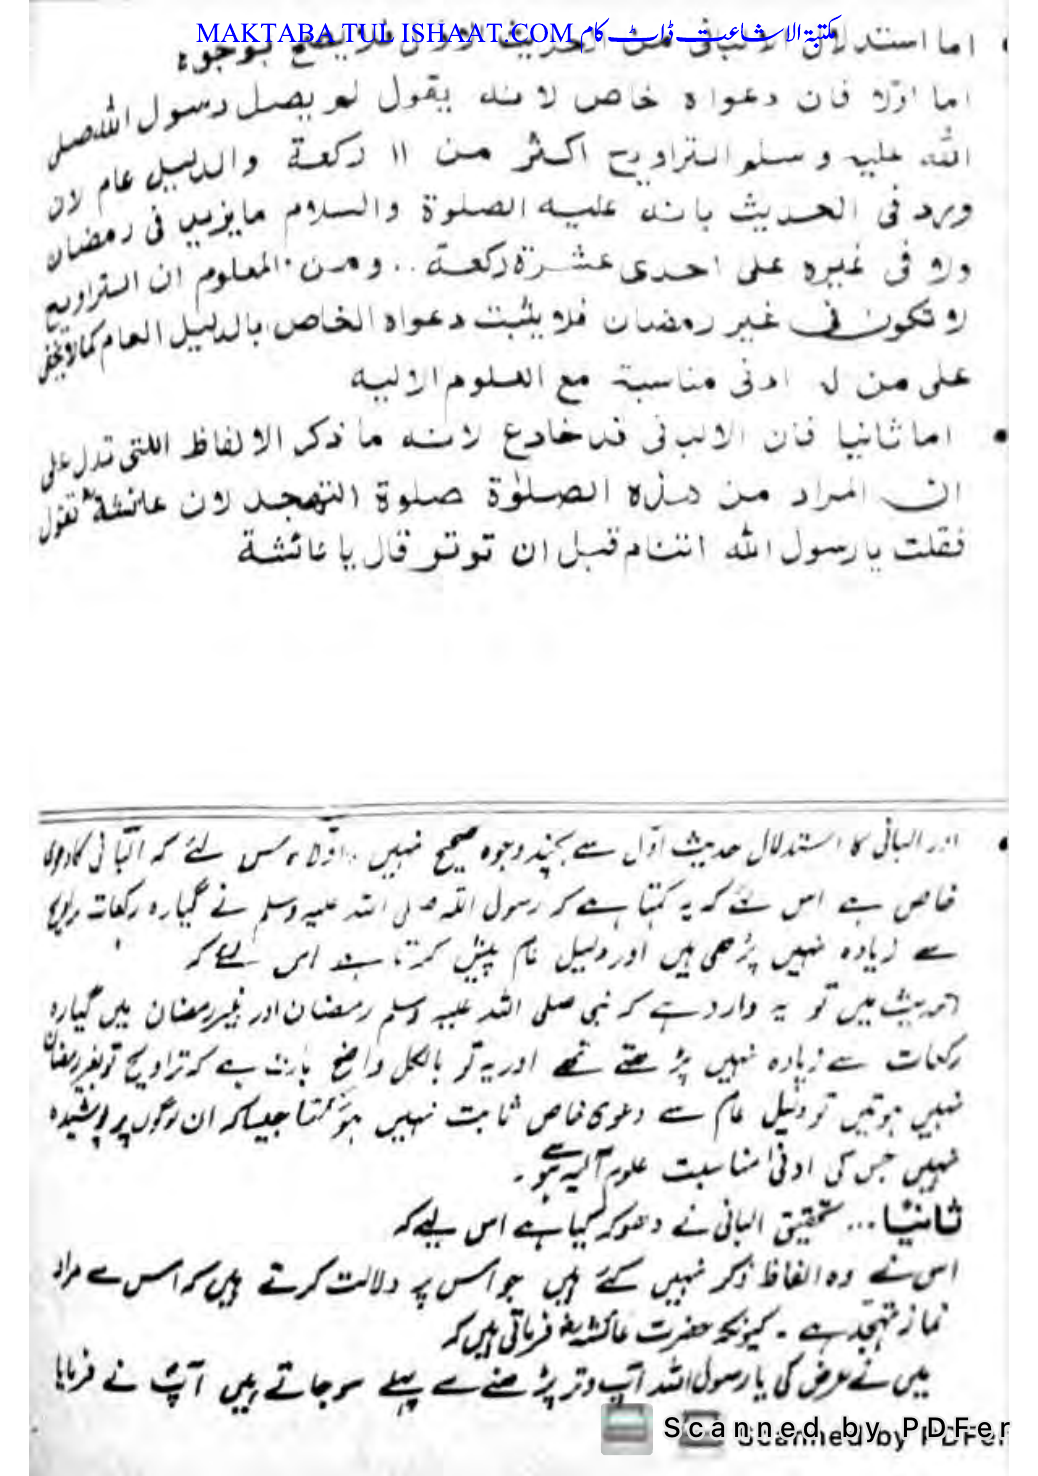 MAKTABA TUL ISHAAT.COM مکتبۃ الاشاعت ڈاٹ کام
اما استدلال الالبانی من الحدیث الاول فلا یصح بوجوہ
اما اولا فان دعواہ خاص لانہ یقول لم یصل رسول اللہ صلی
اللہ علیہ وسلم التراویح اکثر من ۱۱ رکعة والدلیل عام لان
ورد فی الحدیث بانہ علیہ الصلوة والسلام مایزید فی رمضان
ولا فی غیرہ علی احدی عشرة رکعة .. ومن المعلوم ان التراویح
لا تکون فی غیر رمضان فلا یثبت دعواہ الخاص بالدلیل العام کمالا یخفی
علی من ل ادنی مناسبة مع العلوم الالیہ
• اما ثانیا فان الالبانی قد خادع لانہ ما ذکر الالفاظ اللتی تدل علی
ان المراد من ھذہ الصلوٰة صلوة التھجد لان عائشةؓ تقول
فقلت یا رسول اللہ اتنام قبل ان توتر قال یا عائشة
• اور البانی کا استدلال حدیث اوّل سے بچند وجوہ صحیح نہیں، اوّلاً، اس لئے کہ البانی کا دعوی
خاص ہے اس لئے کہ یہ کہتا ہے کہ رسول اللہ صلی اللہ علیہ وسلم نے گیارہ رکعات تراویح
سے زیادہ نہیں پڑھی ہیں اور دلیل عام پیش کرتا ہے اس لئے کہ
حدیث میں تو یہ وارد ہے کہ نبی صلی اللہ علیہ وسلم رمضان اور غیر رمضان میں گیارہ
رکعات سے زیادہ نہیں پڑھتے تھے اور یہ تو بالکل واضح بات ہے کہ تراویح تو غیر رمضان
نہیں ہوتیں تو دلیل عام سے دعوی خاص ثابت نہیں ہو سکتا جیسا کہ ان لوگوں پر پوشیدہ
نہیں جس کی ادنیٰ مناسبت علوم آلیہ سے ہو۔
ثانیًا... تحقیق البانی نے دھوکہ کیا ہے اس لیے کہ
اس نے وہ الفاظ ذکر نہیں کئے ہیں جو اس پر دلالت کرتے ہیں کہ اس سے مراد
نماز تہجد ہے ۔ کیونکہ حضرت عائشہؓ فرماتی ہیں کہ
میں نے عرض کی یا رسول اللہ آپ وتر پڑھنے سے پہلے سو جاتے ہیں آپؐ نے فرمایا
Scanned by PDFer
Scanned by PDFer